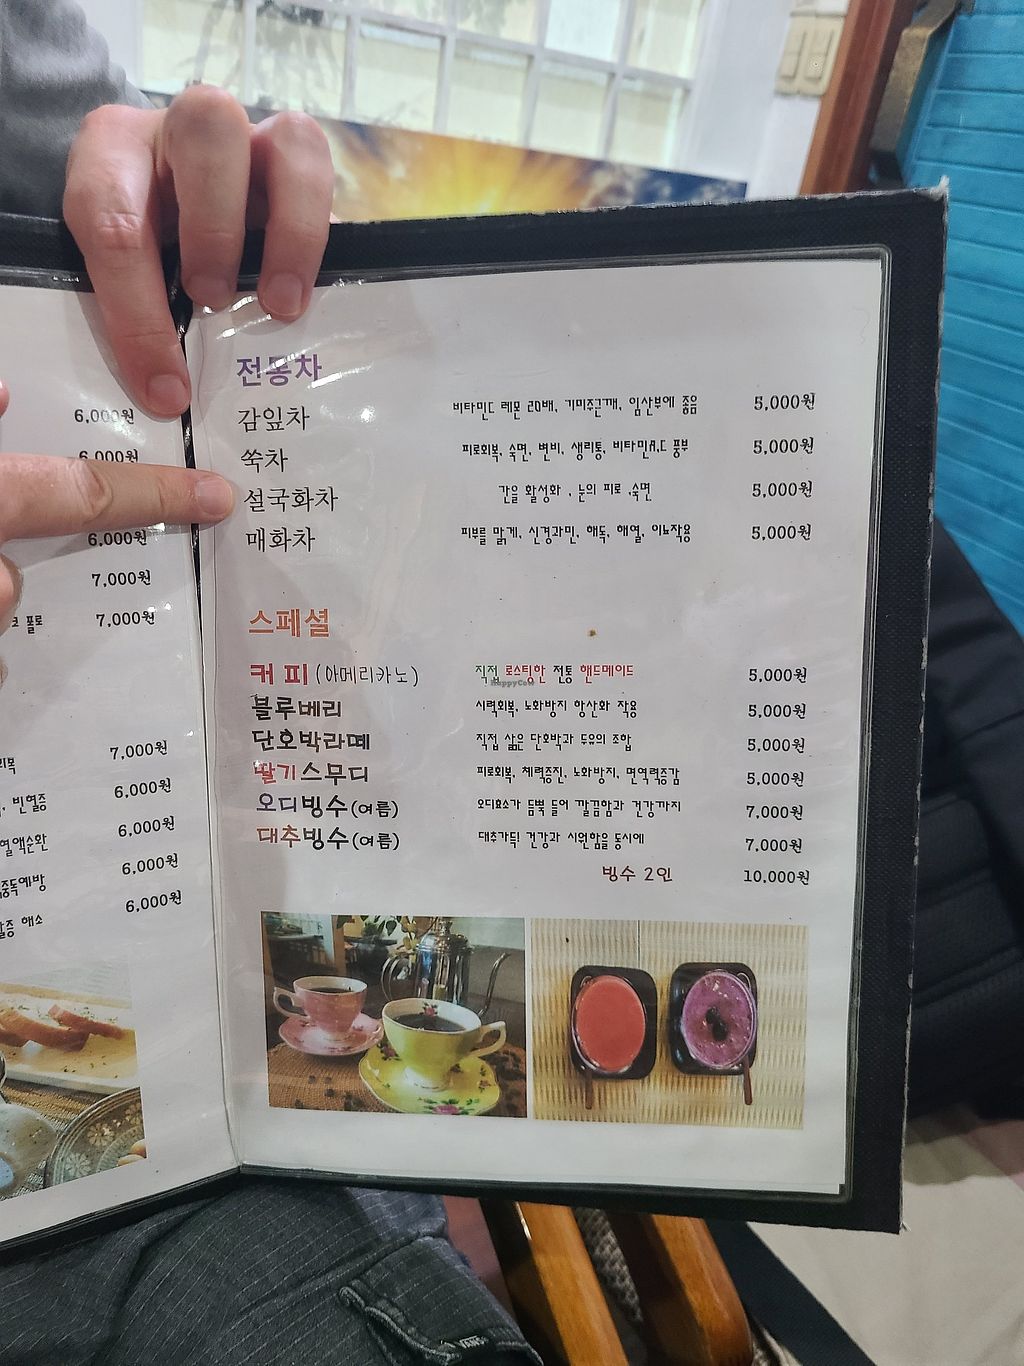 6,000원
6,000원
6,000원
7,000원
폴로 7,000원
7,000원
빈혈증 6,000원
혈액순환 6,000원
중독예방 6,000원
해소 6,000원
전통차
감잎차 비타민C 레몬 20배, 기미주근깨, 임산부에 좋음 5,000원
쑥차 피로회복, 숙면, 변비, 생리통, 비타민A,C 풍부 5,000원
설국화차 간을 활성화 , 눈의 피로 ,숙면 5,000원
매화차 피부를 맑게, 신경과민, 해독, 해열, 이뇨작용 5,000원
스페셜
커피 (아메리카노) 직접 로스팅한 전통 핸드메이드 5,000원
HappyCow
블루베리 시력회복, 노화방지 항산화 작용 5,000원
단호박라떼 직접 삶은 단호박과 두유의 조합 5,000원
딸기스무디 피로회복, 체력증진, 노화방지, 면역력증강 5,000원
오디빙수(여름) 오디효소가 듬뿍 들어 깔끔함과 건강까지 7,000원
대추빙수(여름) 대추가득! 건강과 시원함을 동시에 7,000원
빙수 2인 10,000원
VANS